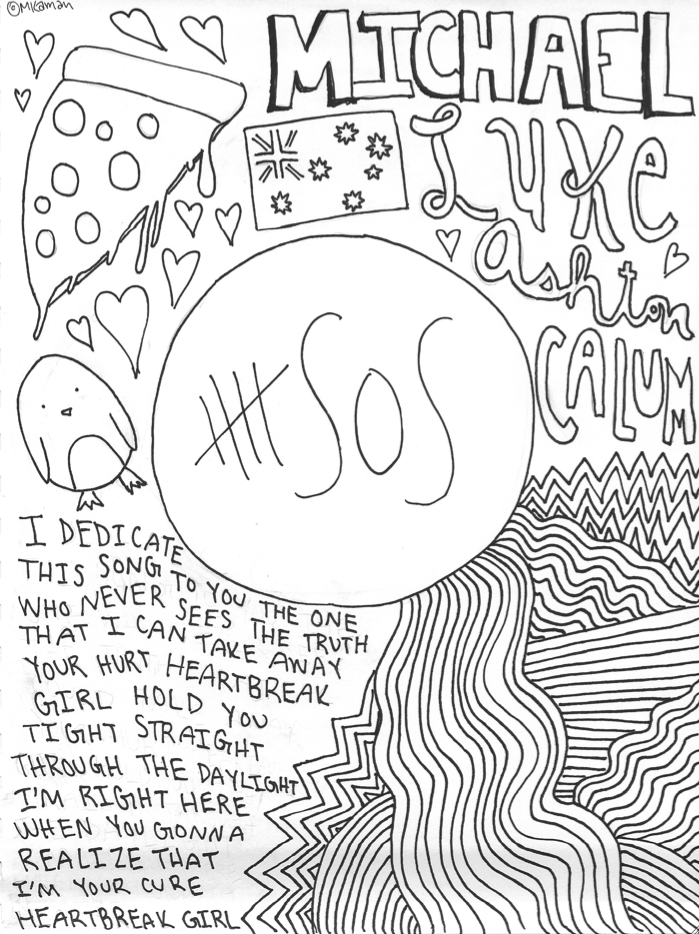 ©Mikaman
MICHAEL
LUKE
ashton
CALUM
SOS
I DEDICATE
THIS SONG TO YOU THE ONE
WHO NEVER SEES THE TRUTH
THAT I CAN TAKE AWAY
YOUR HURT HEARTBREAK
GIRL HOLD YOU
TIGHT STRAIGHT
THROUGH THE DAYLIGHT
I'M RIGHT HERE
WHEN YOU GONNA
REALIZE THAT
I'M YOUR CURE
HEARTBREAK GIRL